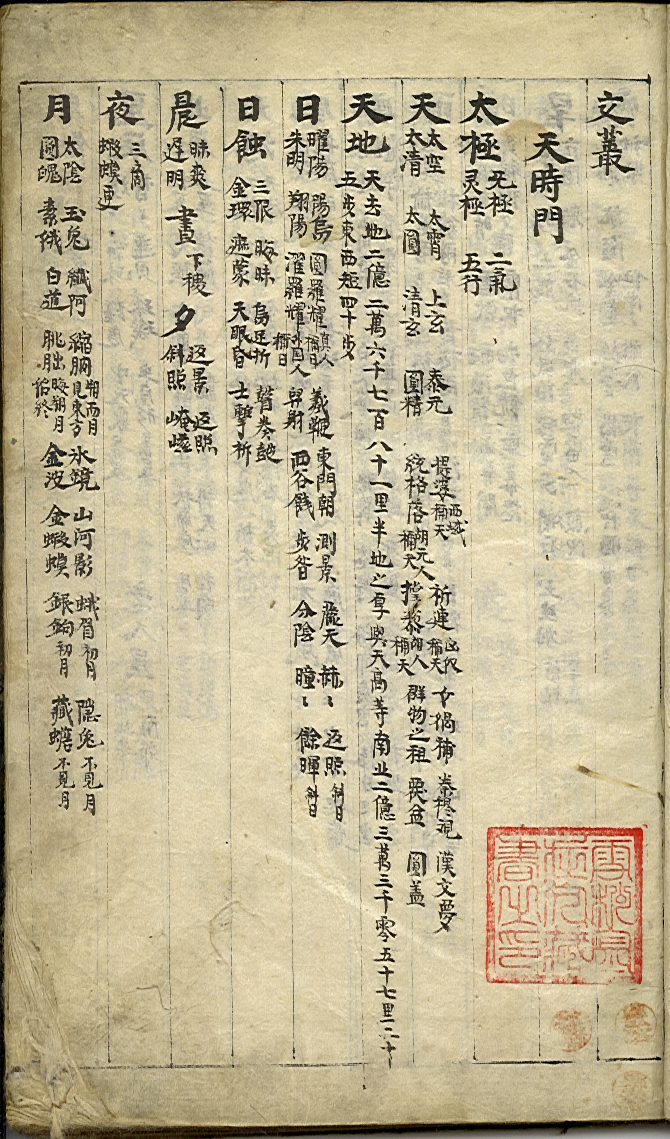 文叢
天時門
太極 无極 二氣
灵極 五行
天 太空 太霄 上玄 泰元 提婆 西域称天 祈連 匈奴称天 女媧補 秦穆覌 漢文夢
太清 太圓 清玄 圓精 統格落 胡元人称天 撑黎 胡人称天 群物之祖 戴盆 圓盖
天地 天去地二億二萬六千七百八十一里半地之厚與天高等南北二億三萬三千零五十七里二十
五步東西短四十步
日 曜陽 陽烏 圓羅耀 真人称日 羲鞭 東門朝 測景 麗天 赫〻 返照 斜日
朱明 翔陽 濯羅耀 外国人称日 羿射 西谷餞 步晷 分陰 曈〻 餘暉 斜日
日蝕 三限 晦昧 烏足折 瞽奏皷
金環 遮蒙 天眼昏 士擊柝
晨 昧爽 晝 下稷 夕 返景 返照
遅明 斜照 崦嵫
夜 三商
蝦蟆更
月 太陰 玉兔 纖阿 縮朒 朔而月見東方 氷鏡 山河影 蛾眉 初月 隠兔 不見月
圓魄 素娥 白道 朓朏 晦朔月 金波 金蝦蟆 銀鉤 初月 藏蟾 不見月